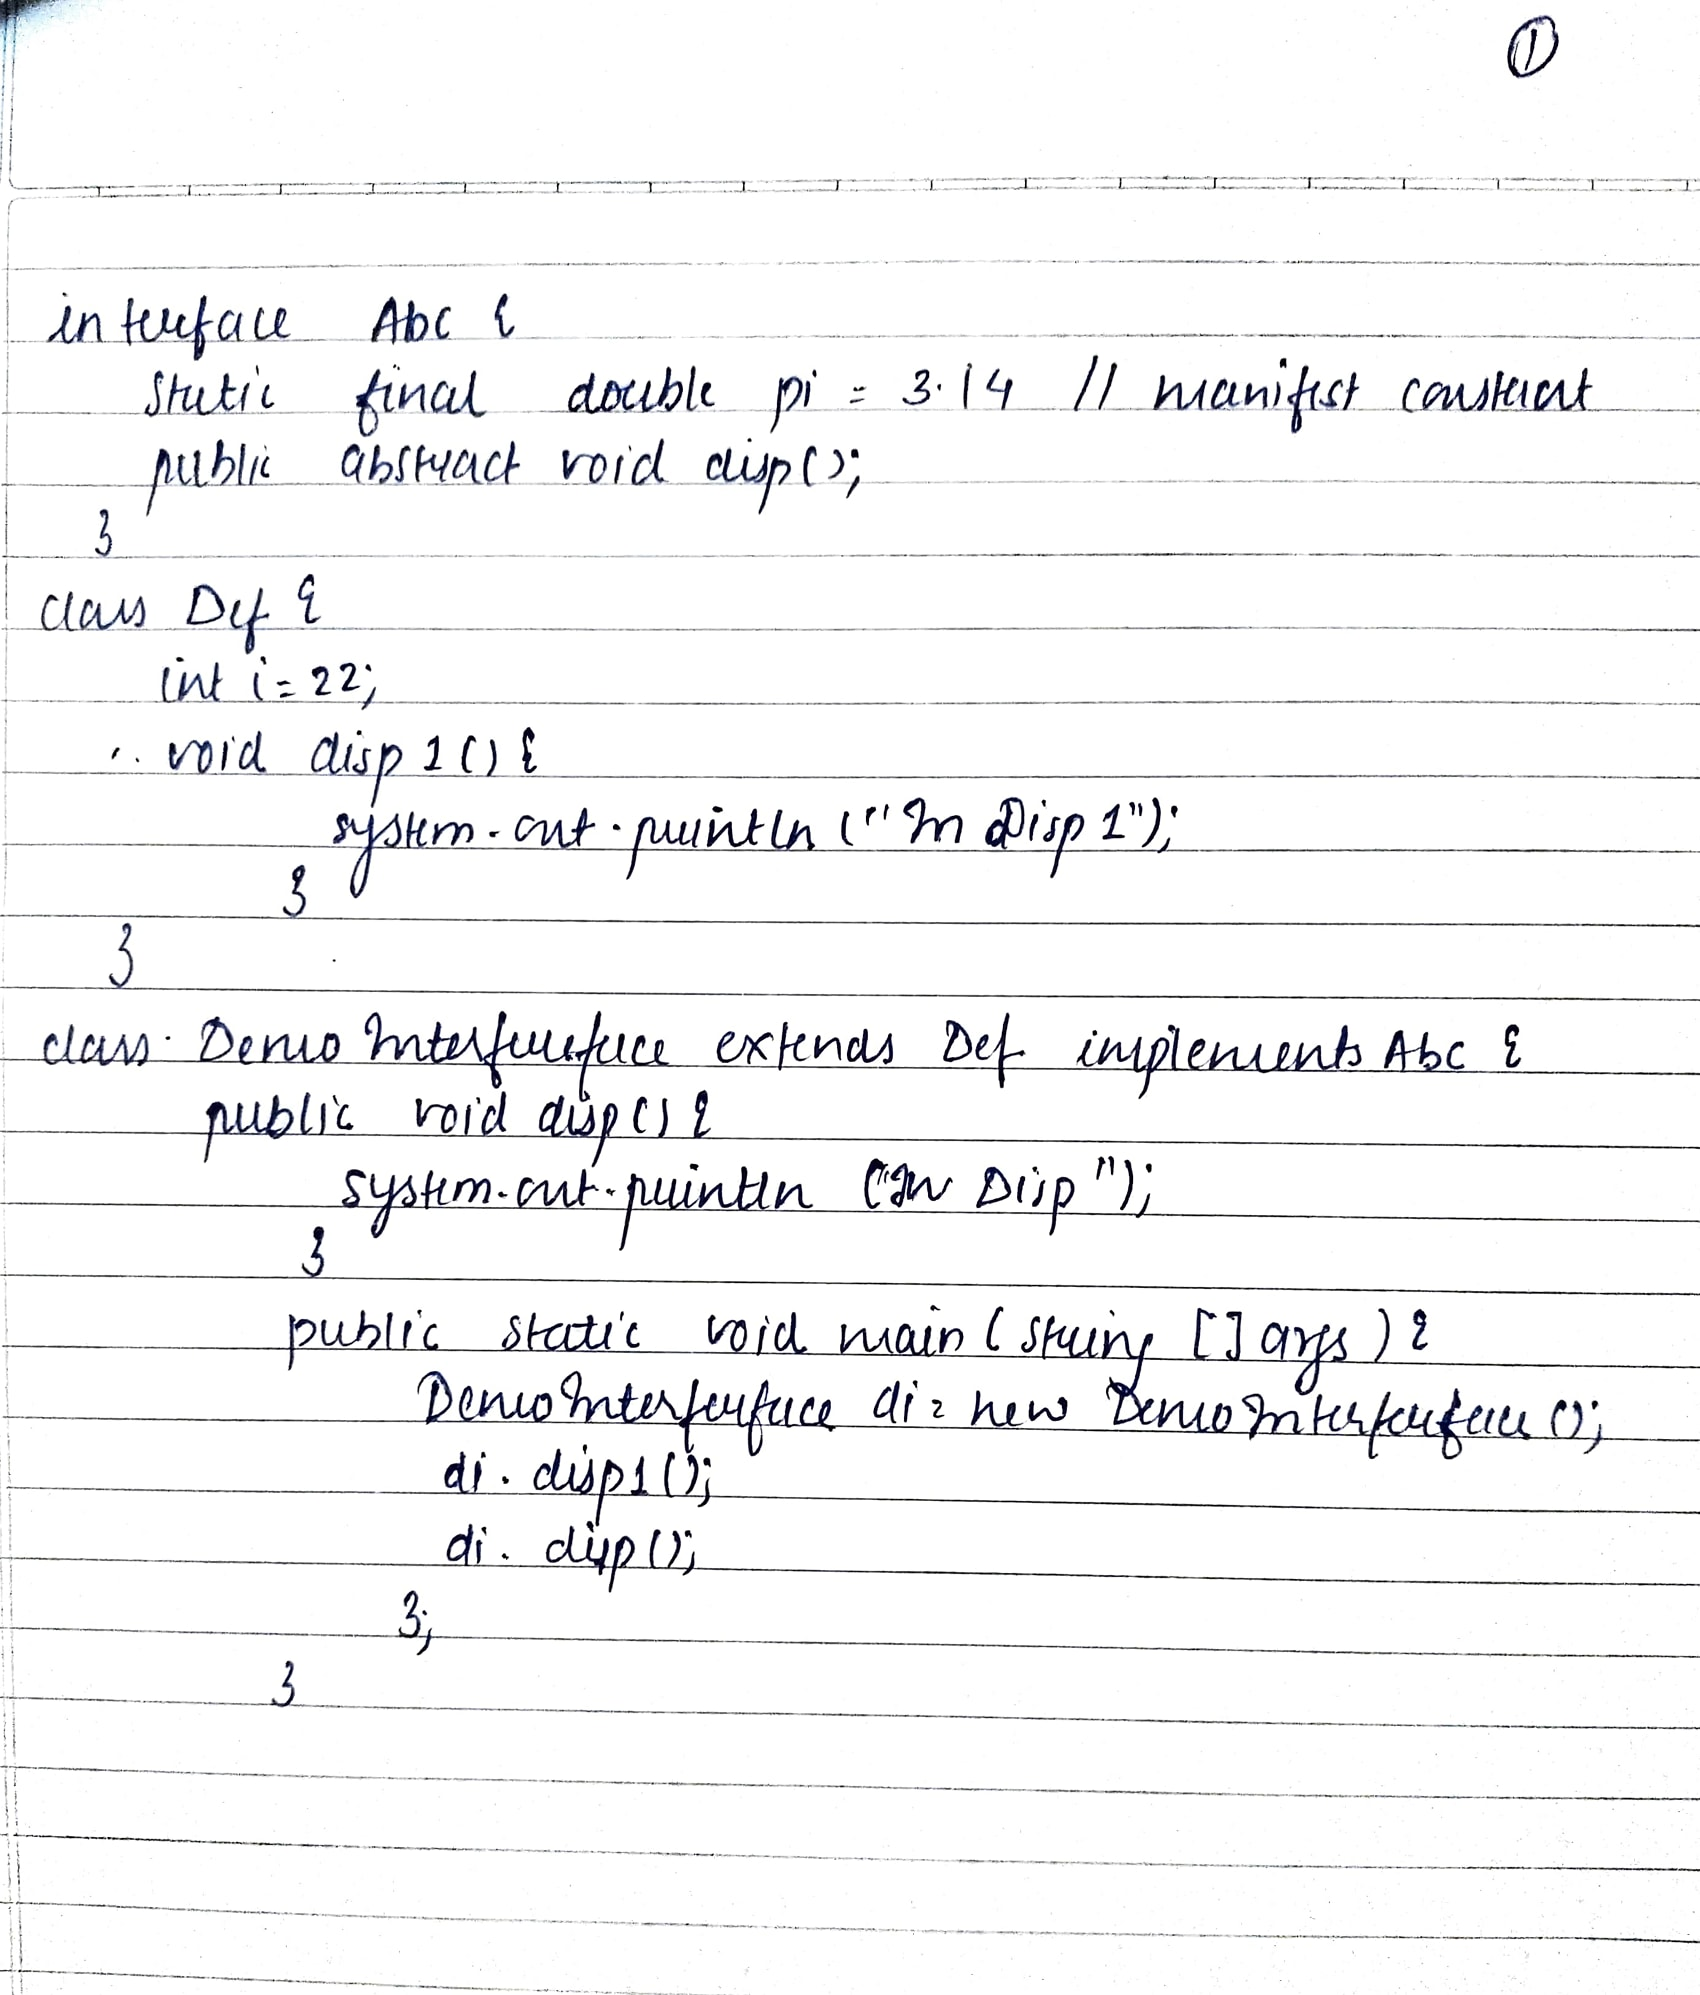 1
interface Abc {
static final double pi = 3.14 // manifest constant
public abstract void disp();
}
class Def {
int i = 22;
void disp1() {
system.out.println ("In Disp1");
}
}
class DemoInterferface extends Def implements Abc {
public void disp() {
system.out.println ("In Disp");
}
public static void main (string [] args) {
DemoInterferface di = new DemoInterferface ();
di. disp1();
di. disp();
};
}